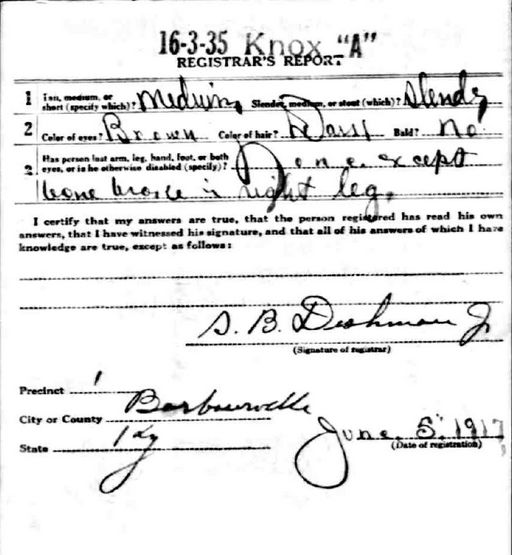 16-3-35 Knox "A"
REGISTRAR'S REPORT
1 Tall, medium, or short (specify which)? Medium Slender, medium, or stout (which)? Slender
2 Color of eyes? Brown Color of hair? Dark Bald? No
3 Has person lost arm, leg, hand, foot, or both
eyes, or is he otherwise disabled (specify)? None except
bone broke in right leg.
I certify that my answers are true, that the person registered has read his own
answers, that I have witnessed his signature, and that all of his answers of which I have
knowledge are true, except as follows:
S. B. Dishman Jr
(Signature of registrar)
Precinct 1
City or County Barbourville
State Ky June 5" 1917
(Date of registration)